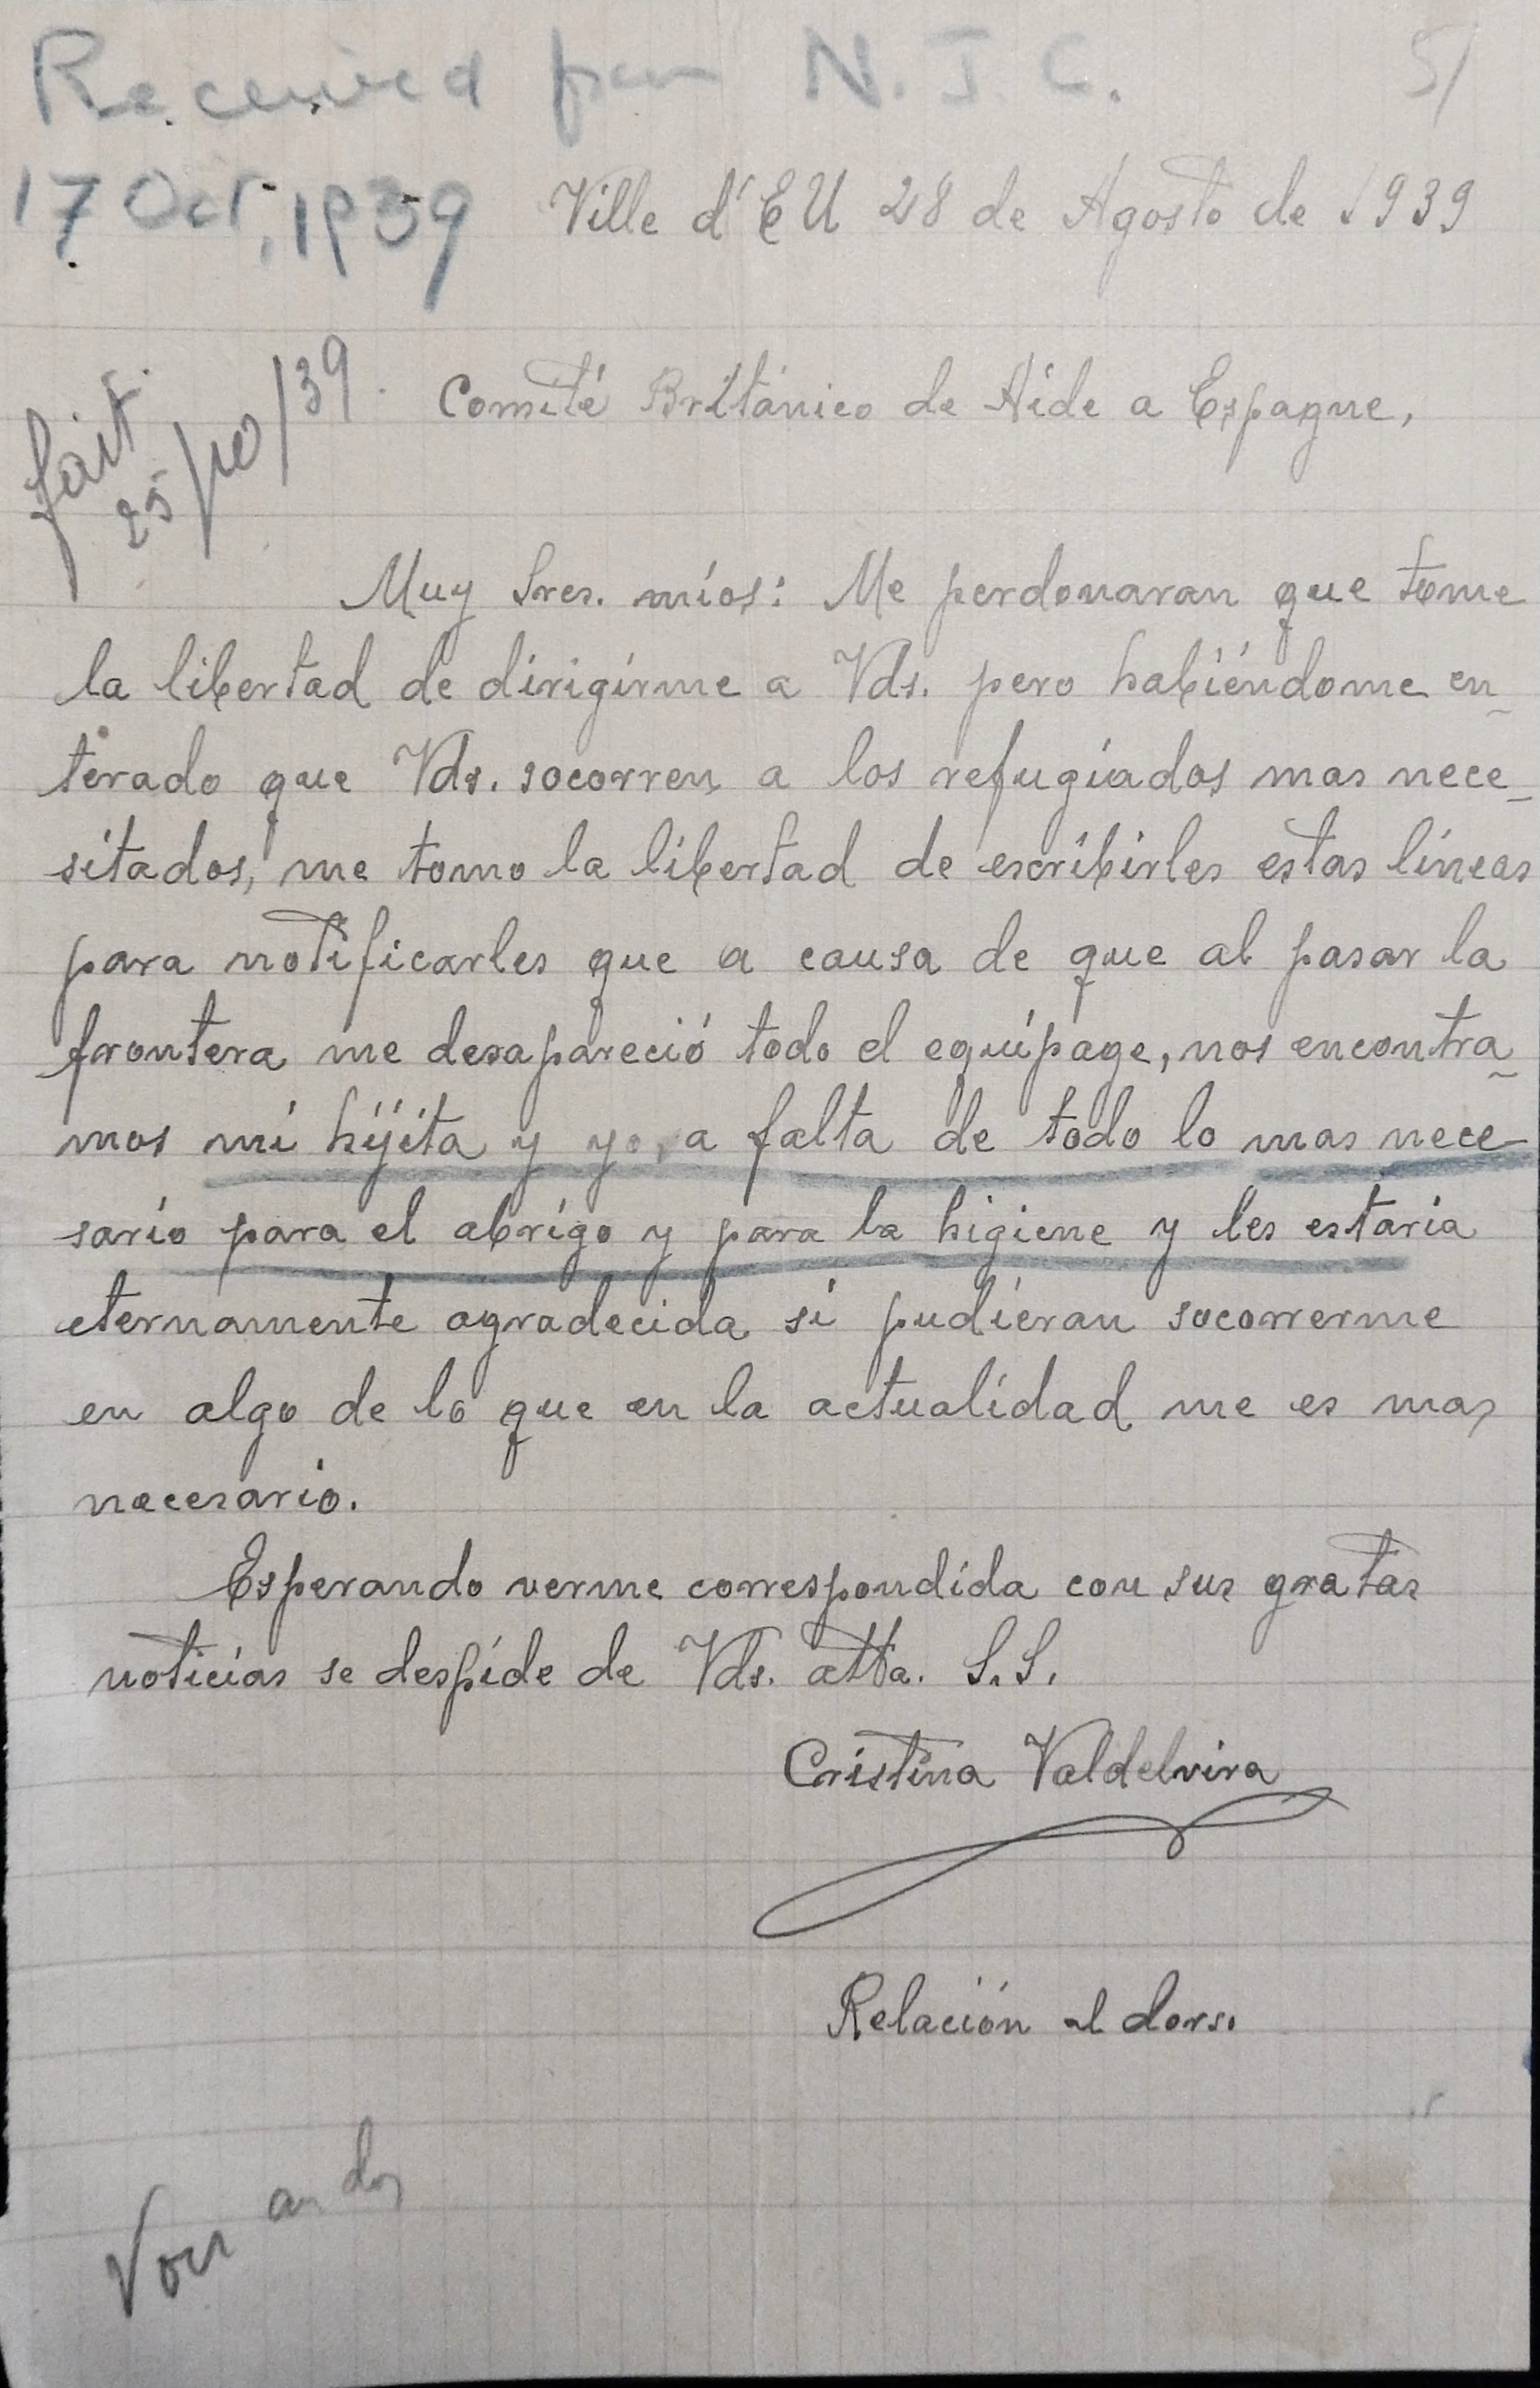 Received from N. J. C. 5/
17 Oct, 1939
Ville d'EU 28 de Agosto de 1939
fait
25/10/39.
Comité Británico de Aide a Espagne,
Muy Sres. míos: Me perdonaran que tome
la libertad de dirigirme a Vds. pero habiéndome en-
terado que Vds. socorren a los refugiados mas nece-
sitados, me tomo la libertad de escribirles estas líneas
para notificarles que a causa de que al pasar la
frontera me desapareció todo el equipage, nos encontra-
mos mi hijita y yo, a falta de todo lo mas nece-
sario para el abrigo y para la higiene y les estaria
eternamente agradecida si pudieran socorrerme
en algo de lo que en la actualidad me es mas
necesario.
Esperando verme correspondida con sus gratas
noticias se despide de Vds. atta. S.S.
Cristina Valdelvira
Relación al dorso
Voir au dos